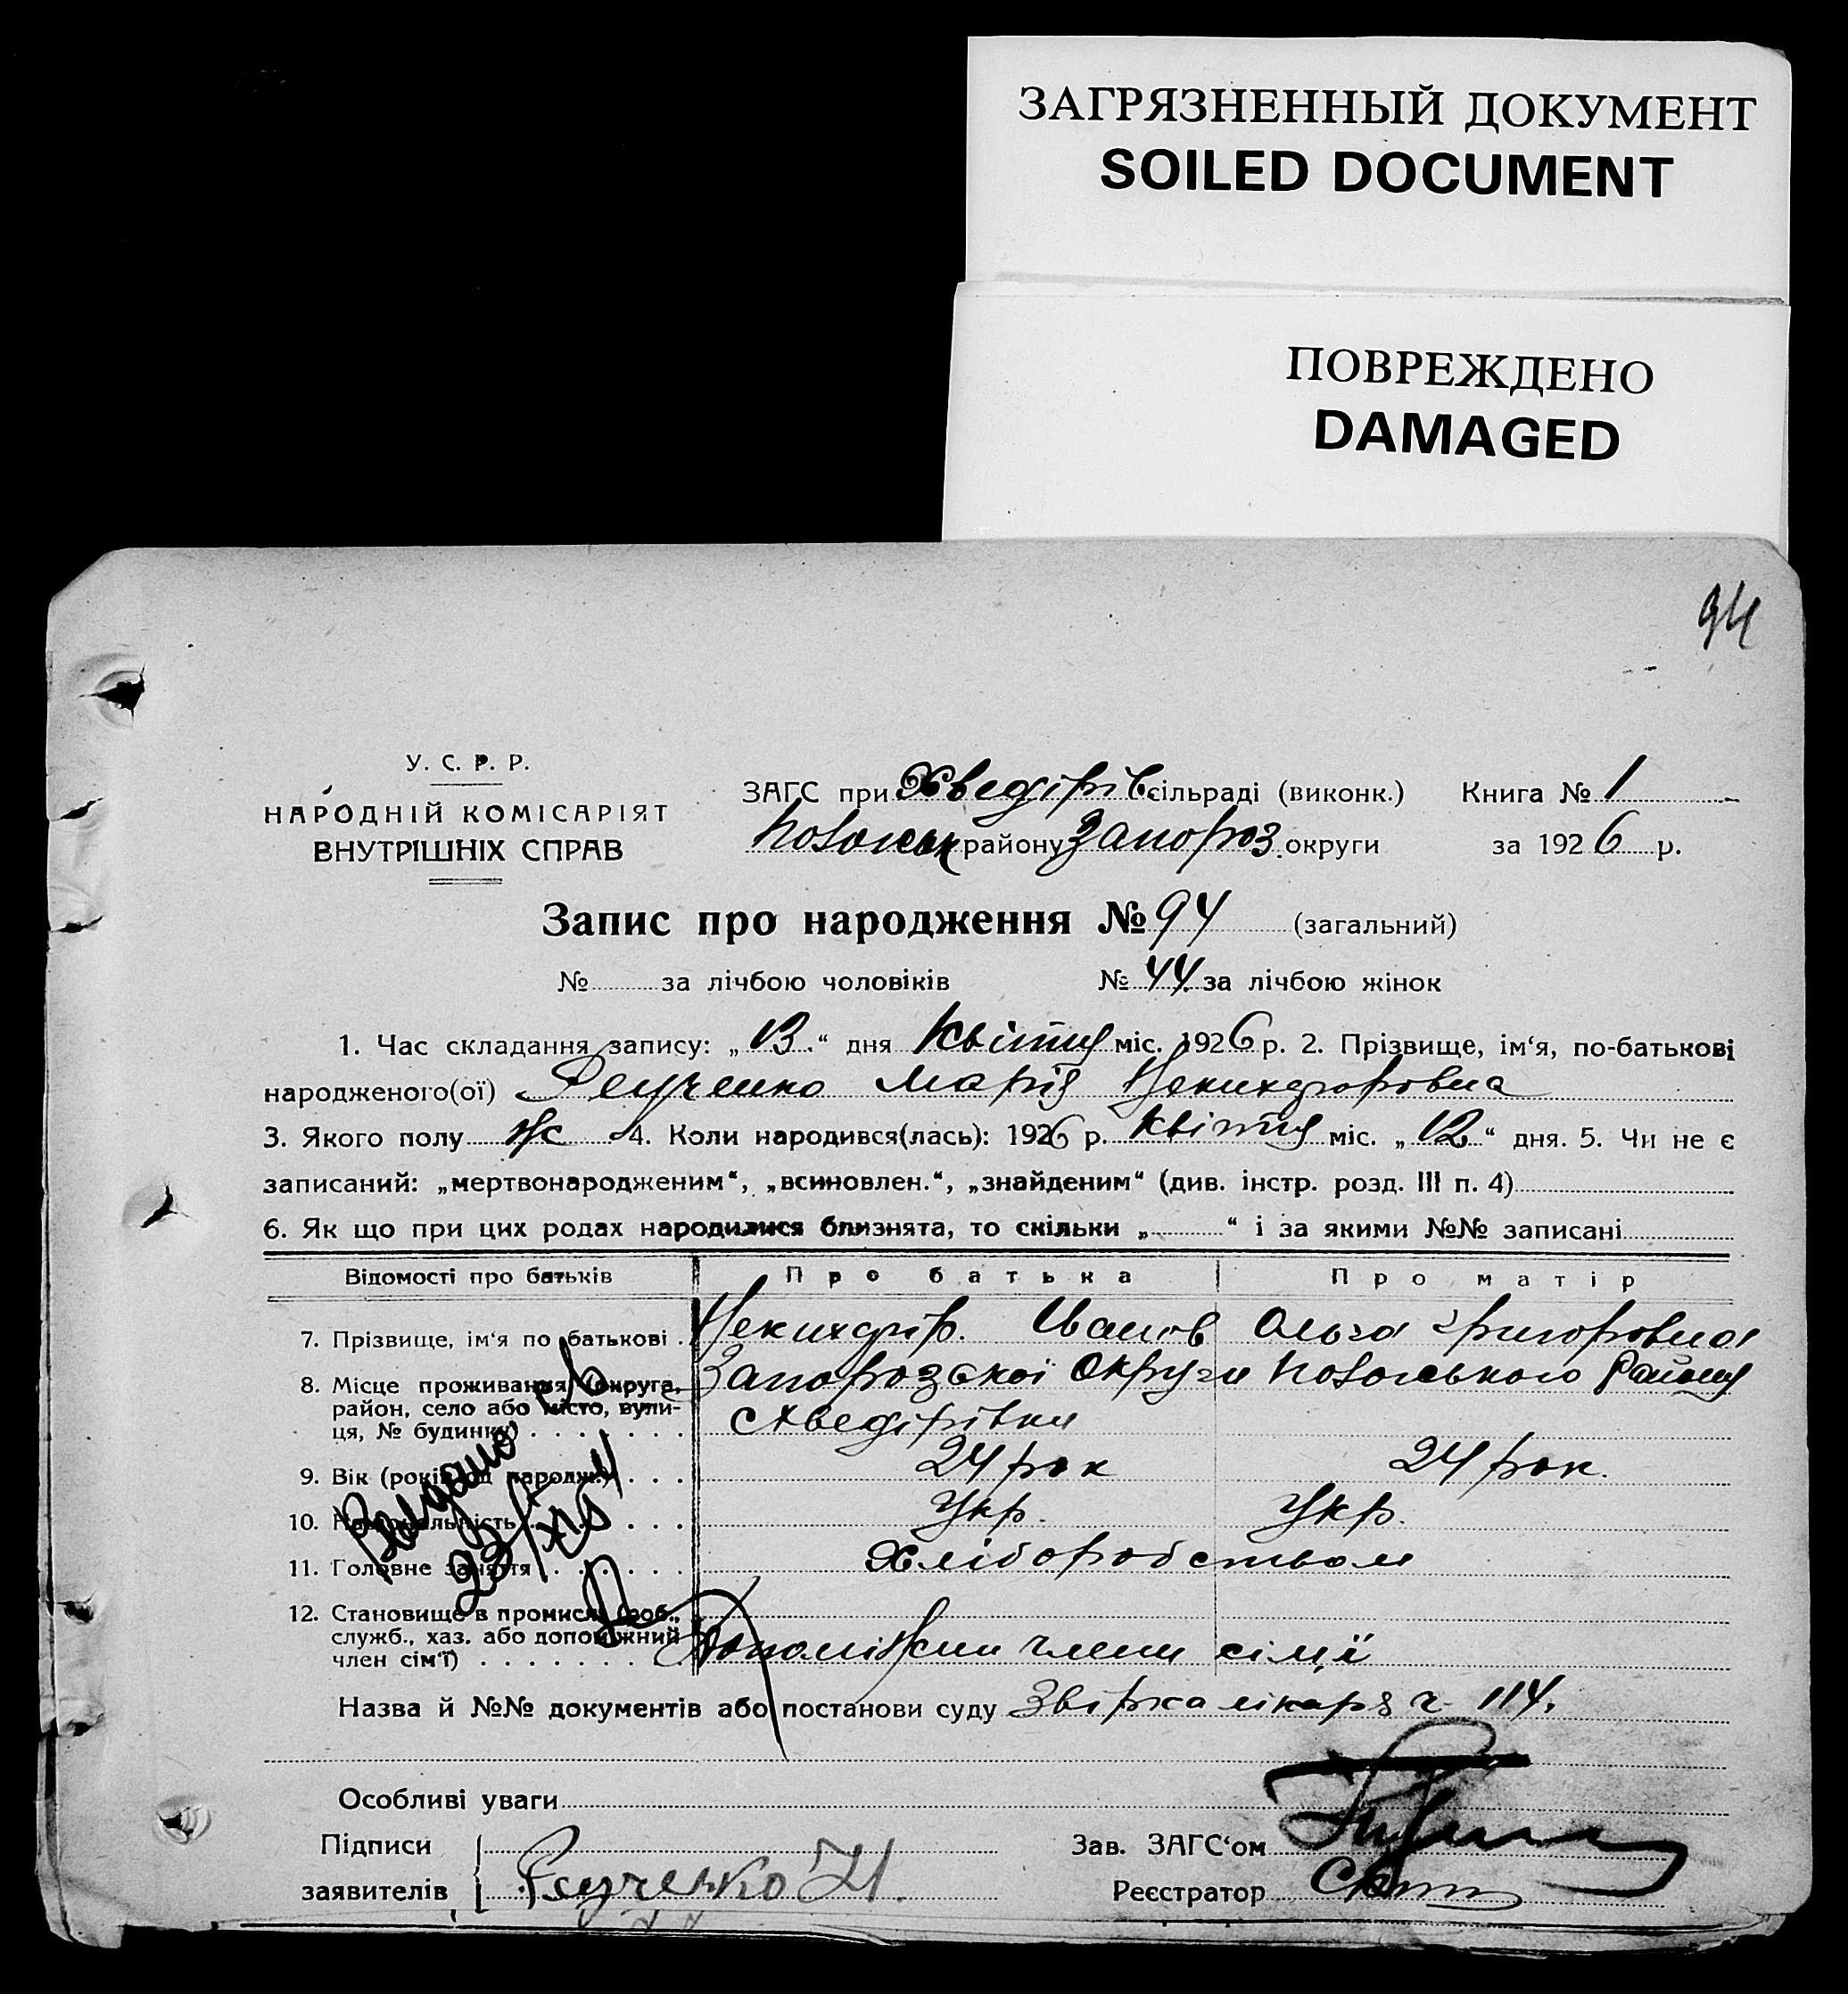 ЗАГРЯЗНЕННЫЙ ДОКУМЕНТ
SOILED DOCUMENT
ПОВРЕЖДЕНО
DAMAGED
94
У. С. Р. Р.
НАРОДНІЙ КОМІСАРІЯТ
ВНУТРІШНІХ СПРАВ
ЗАГС при Хведірів сільраді (виконк.) Книга № 1
району Запороз. округи за 1926 р.
Запис про народження № 94 (загальний)
№ за лічбою чоловіків № 44 за лічбою жінок
1. Час складання запису: „13.“ дня Квітня міс. 1926 р. 2. Прізвище, ім‘я, по-батькові
народженого(ої) Марія
3. Якого полу жс 4. Коли народився(лась): 1926 р. Квітня міс. „12“ дня. 5. Чи не є
записаний: „мертвонародженим“, „всиновлен.“, „знайденим“ (див. інстр. розд. III п. 4)
6. Як що при цих родах народилися близнята, то скільки „ “ і за якими №№ записані
Відомості про батьків Про батька Про матір
7. Прізвище, ім‘я по батькові . Іванов Ольга Григоровна
8. Місце проживання (округа, Запорозської Округи Району
район, село або місто, вули-
ця, № будинку) . . . . . . . Хведірівки
9. Вік (років од народж.) . . . 24 рок 24 рок.
10. Національність . . . Укр. Укр.
11. Головне заняття . . . . . . . Хліборобством
12. Становище в промислі (роб.,
служб., хаз. або допоміжний Допоміжни члени сімї
член сім‘ї) . . . . . . . .
Видано
23/XII
Назва й №№ документів або постанови суду лікаря ч 114.
Особливі уваги
Підписи Зав. ЗАГС‘ом
заявителів Реєстратор